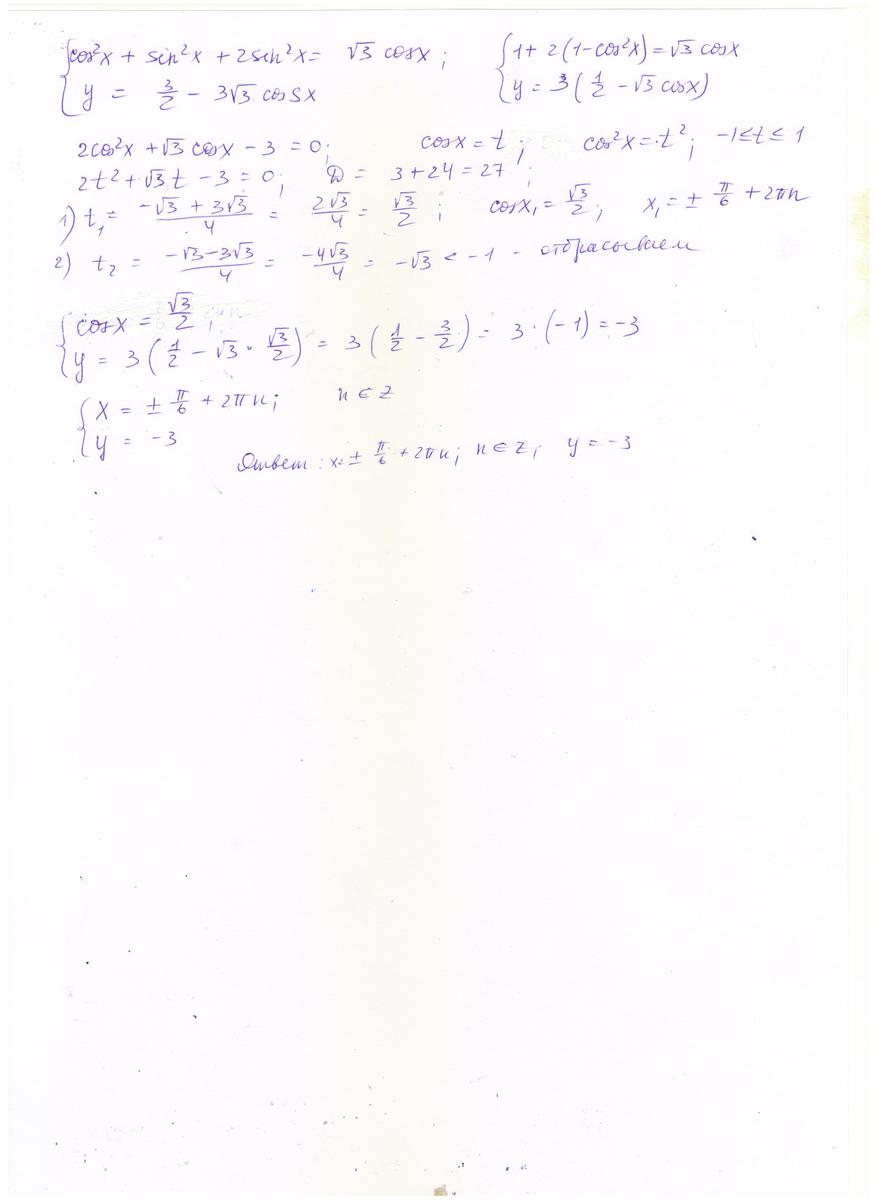 {cos²x + sin²x + 2sin²x = √3 cosx; {1 + 2(1-cos²x) = √3 cosx
{y = 3/2 - 3√3 cosx y = 3(1/2 - √3 cosx)
2cos²x + √3 cosx - 3 = 0; cosx = t; cos²x = t²; -1≤t≤1
2t² + √3 t - 3 = 0; D = 3 + 24 = 27;
1) t₁ = (-√3 + 3√3)/4 = 2√3/4 = √3/2; cosx₁ = √3/2; x₁ = ± π/6 + 2πn
2) t₂ = (-√3 - 3√3)/4 = -4√3/4 = -√3 < -1 - отбрасываем
{cosx = √3/2;
{y = 3(1/2 - √3 · √3/2) = 3(1/2 - 3/2) = 3·(-1) = -3
{x = ± π/6 + 2πn; n ∈ Z
{y = -3
Ответ: x = ± π/6 + 2πn; n ∈ Z; y = -3